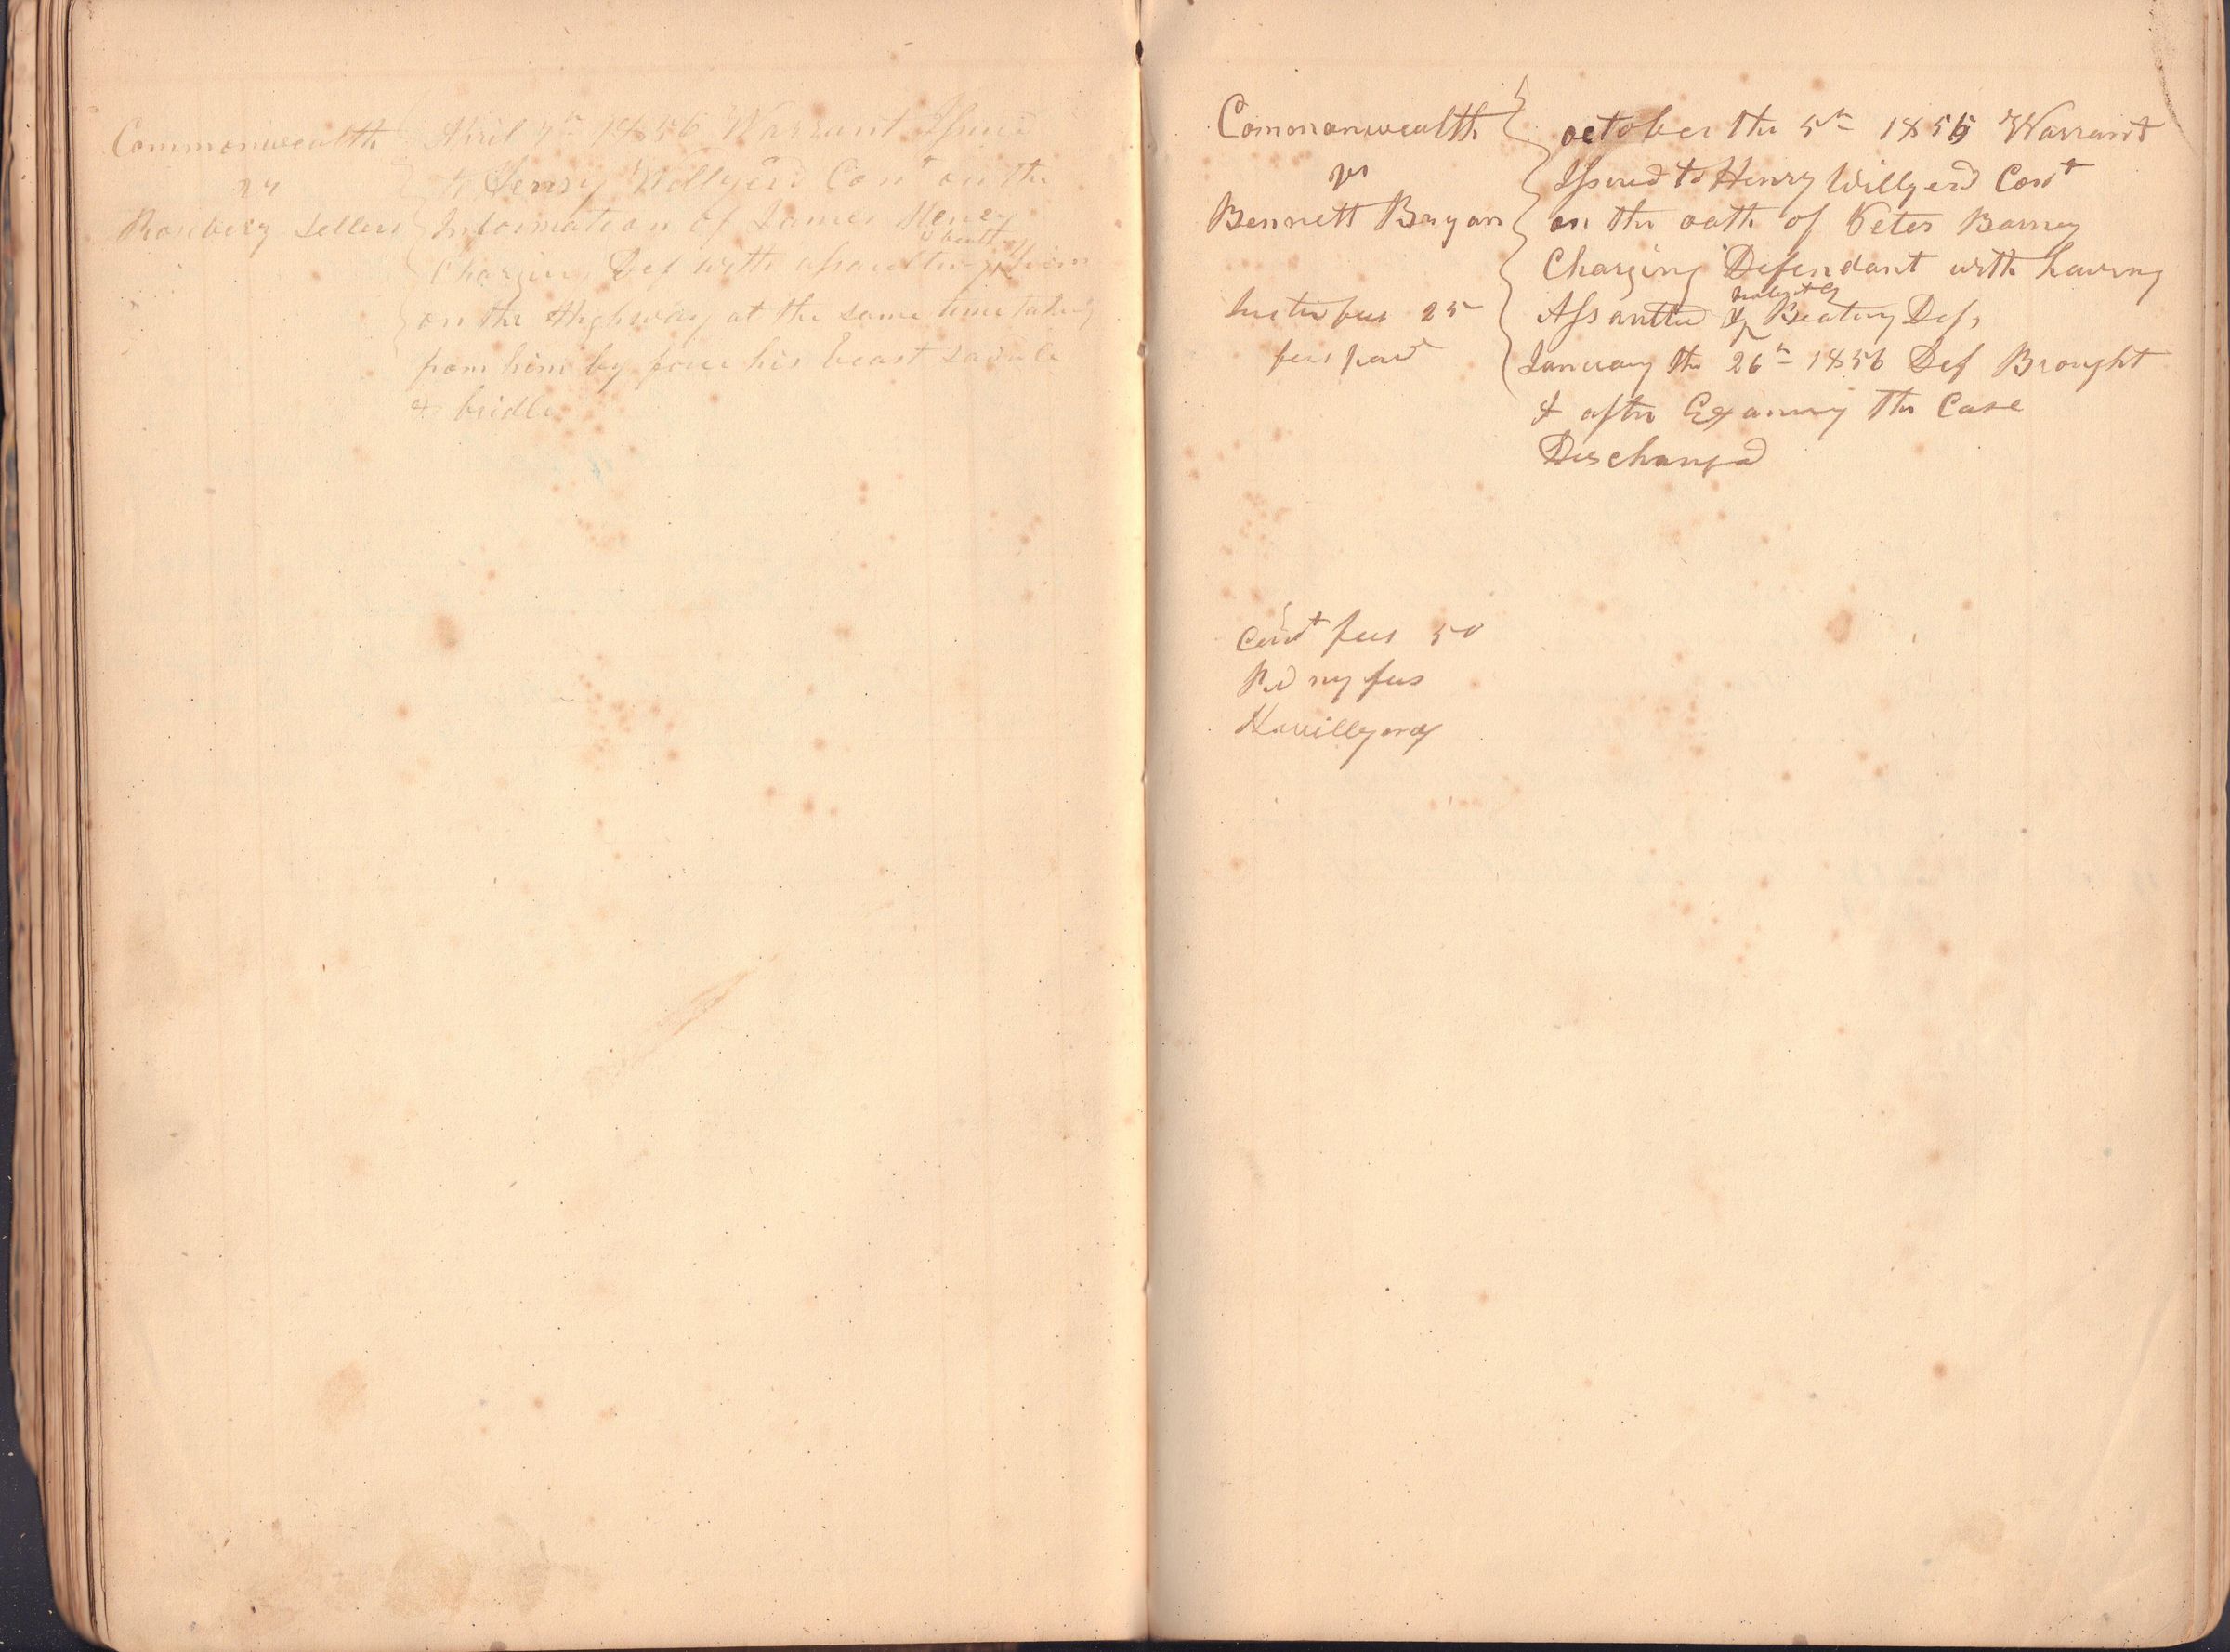 Commonwealth
vs
Roseberry Sellers
April 7th 1856 Warrant Issued
to Henry Willyerd Cont on the
Information of James Henry
Charging Def with assaulting & beatt him
on the Highway at the same time taking
from him by force his beast Saddle
& bridle
Commonwealth
vs
Bennett Bryan
Justis fees 25
fees paid
october the 5th 1855 Warrant
Issued to Henry Willyerd Cont
on the oath of Peter Barney
Charging Defendant with having
Assaulted & Beating Def
January the 26th 1856 Def Brought
& after Examing the Case
Discharged
Const fees 50
Rd my fees
H. Willyard